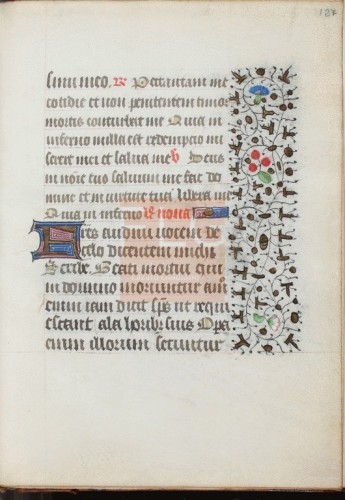 127
sinu meo. R Peccantem me
cotidie et non penitentem timor
mortis conturbat me Quia in
inferno nulla est redempcio mi
serere mei et salua me V Deus
in noie tuo saluum me fac do
mine et in uirtute tua libera me
Quia in inferno
Audiui uocem de
celo dicentem michi
Scribe Beati mortui qui
in domino moriuntur am
enim iam dicit sps ut requi
escant a laboribz suis Opa
enim illorum secuntur